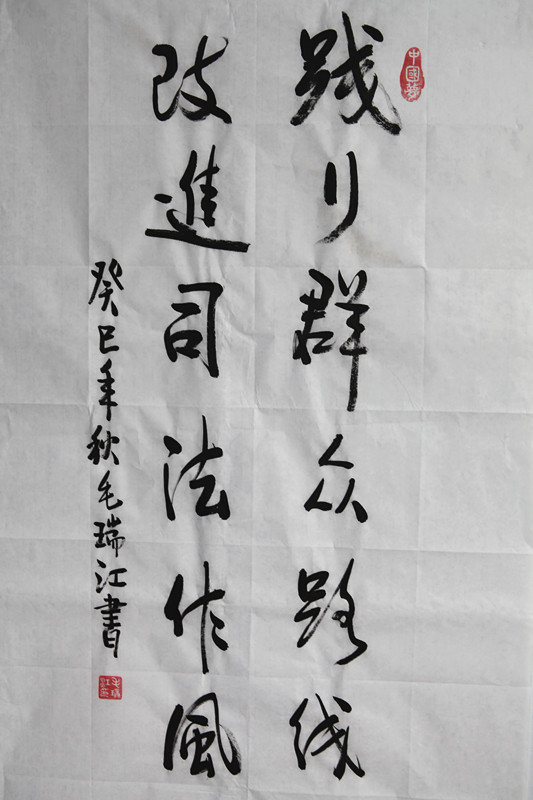 中國夢
践行群众路线
改進司法作風
癸巳年秋毛瑞江書